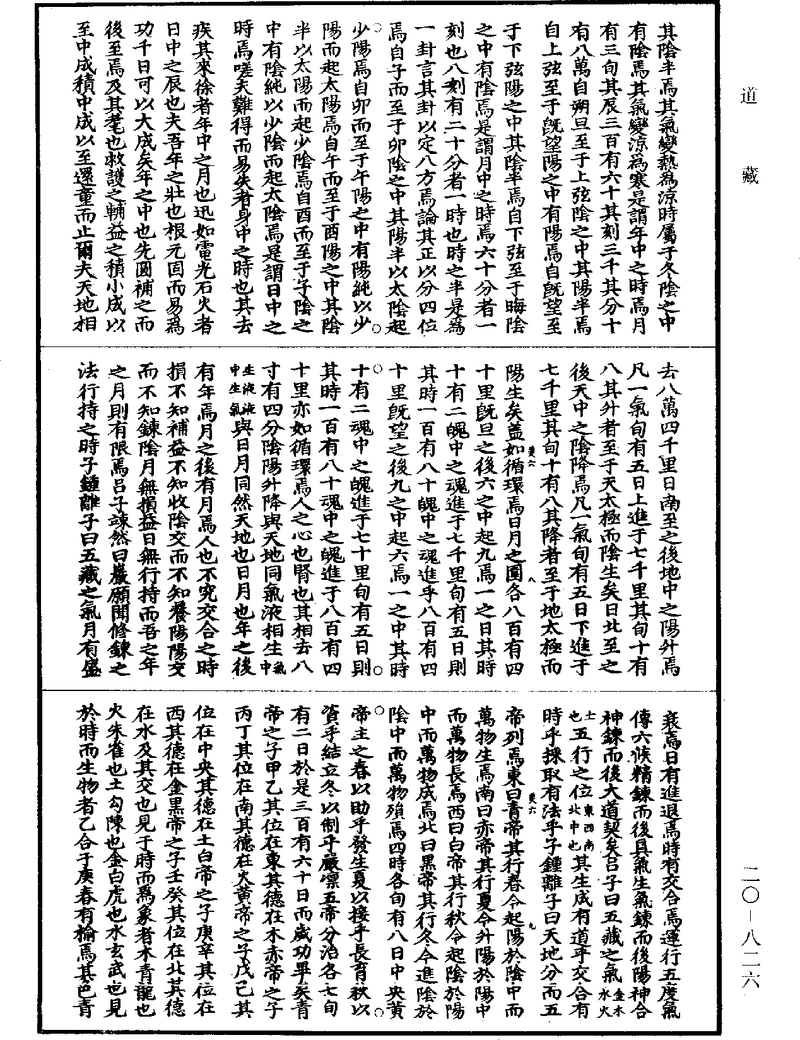 道藏
其陰半焉其氣變熱為涼時屬于冬陰之中
有陰焉其氣變涼為寒是謂年中之時焉月
有三旬其辰三百有六十其刻三千其分十
有八萬自朔旦至于上弦陰之中其陽半焉
自上弦至于旣望陽之中有陽焉自旣望至
于下弦陽之中其陰半焉自下弦至于晦陰
之中有陰焉是謂月中之時焉六十分者一
刻也八刻有二十分者一時也時之半是爲
一卦言其卦以定八方焉論其正以分四位
焉自子而至于卯陰之中其陽半以太陰起
少陽焉自卯而至于午陽之中有陽純以少
陽而起太陽焉自午而至于酉陽之中其陰
半以太陽而起少陰焉自酉而至于子陰之
中有陰純以少陰而起太陰焉是謂日中之
時焉嗟夫難得而易失者身中之時也其去
疾其來徐者年中之月也迅如電光石火者
日中之辰也夫吾年之壯也根元固而易爲
功千日可以大成矣年之中也先圓補之而
後至焉及其耄也救護之輔益之積小成以
至中成積中成以至還童而止爾夫天地相
去八萬四千里日南至之後地中之陽升焉
凡一氣旬有五日上進于七千里其旬十有
八其升者至于天太極而陰生矣日北至之
後天中之陰降焉凡一氣旬有五日下進于
七千里其旬十有八其降者至于地太極而
陽生矣蓋如循環焉日月之圓各八百有四
十里旣旦之後六之中起九焉一之日其時
十有二魄中之魂進于七千里旬有五日則
其時一百有八十魄中之魂進乎八百有四
十里旣望之後九之中起六焉一之中其時
十有二魂中之魄進于七十里旬有五日則
其時一百有八十魂中之魄進于八百有四
十里亦如循環焉人之心也腎也其相去八
寸有四分陰陽升降與天地同氣液相生氣中
生液液中生氣與日月同然天地也日月也年之後
有年焉月之後有月焉人也不究交合之時
損不知補益不知收陰交而不知養陽陽交
而不知鍊陰月無損益日無行持而吾之年
之月則有限焉吕子竦然曰嚴願聞修鍊之
法行持之時子鍾離子曰五藏之氣月有盛
衰焉日有進退焉時有交合焉運行五度氣
傳六候精鍊而後具氣生氣鍊而後陽神合
神鍊而後大道契矣吕子曰五藏之氣金木水火
土也五行之位東西南北中也其生成有道乎交合有
時乎採取有法乎子鍾離子曰天地分而五
帝列焉東曰青帝其行春令起陽於陰中而
萬物生焉南曰赤帝其行夏令升陽於陽中
而萬物長焉西曰白帝其行秋令起陰於陽
中而萬物成焉北曰黑帝其行冬令進陰於
陰中而萬物殞焉四時各旬有八日中央黄
帝主之春以助乎發生夏以接乎長育秋以
資乎結立冬以制乎嚴凛五帝分治各七旬
有二日於是三百有六十日而成功畢矣青
帝之子甲乙其位在東其德在木赤帝之子
丙丁其位在南其德在火黄帝之子戊己其
位在中央其德在土白帝之子庚辛其位在
西其德在金黑帝之子壬癸其位在北其德
在水及其交也見于時而爲象者木青龍也
火朱雀也土勾陳也金白虎也水玄武也見
於時而生物者乙合于庚春有榆焉其色青
二〇-八二六